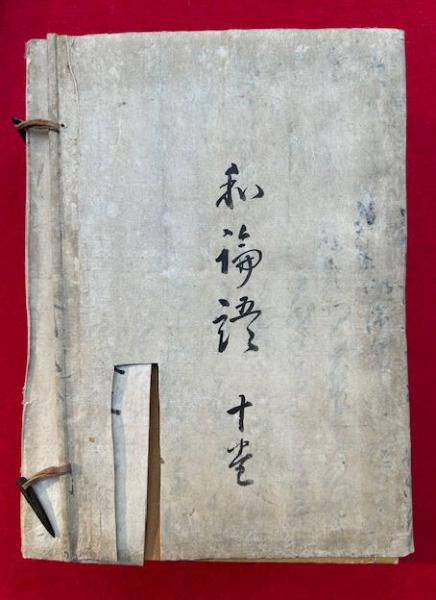 和論語 十巻